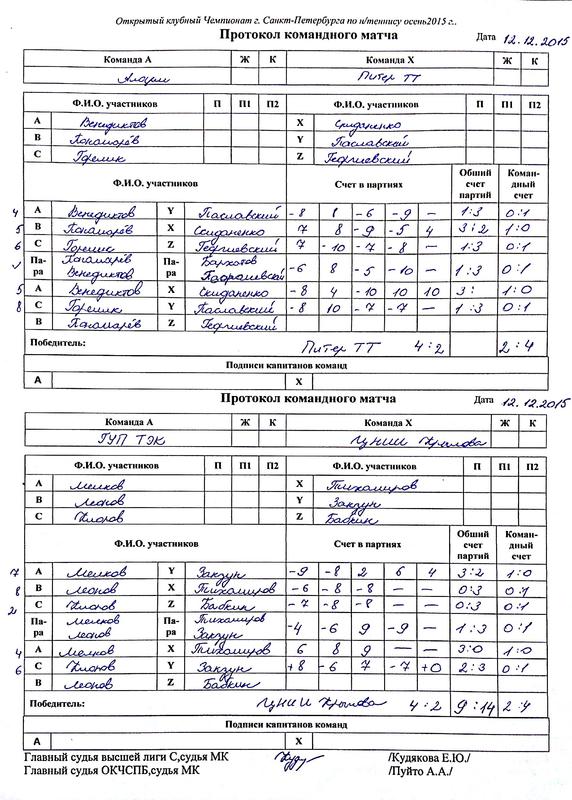 Открытый клубный Чемпионат г. Санкт-Петербурга по н/теннису осень2015 г..
Протокол командного матча Дата 12.12.2015
Команда А Ж К Команда Х Ж К
Питер ТТ
Ф.И.О. участников П П1 П2 Ф.И.О. участников П П1 П2
А Венедиктов X Скиданенко
В Пономарёв Y Пославский
С Горелик Z Георгиевский
Ф.И.О. участников Счет в партиях Общий счет партий Коман-дный счет
4 А Венедиктов Y Пославский -8 8 -6 -9 — 1:3 0:1
5 В Пономарёв X Скиданенко 7 8 -9 -5 4 3:2 1:0
6 С Горелик Z Георгиевский 7 -10 -7 -8 — 1:3 0:1
Па-ра Пономарёв Венедиктов Па-ра -6 8 -5 -10 — 1:3 0:1
5 А Венедиктов X Скиданенко -8 4 -10 10 10 3: 1:0
8 С Горелик Y Пославский -8 10 -7 -7 — 1:3 0:1
В Пономарёв Z Георгиевский
Победитель: Питер ТТ 4:2 2:4
Подписи капитанов команд
А X
Протокол командного матча Дата 12.12.2015
Команда А Ж К Команда Х Ж К
ГУП ТЭК ЦНИИ Крылова
Ф.И.О. участников П П1 П2 Ф.И.О. участников П П1 П2
А Мелков X Тихомиров
В Леонов Y Закзун
С Z Бабкин
Ф.И.О. участников Счет в партиях Общий счет партий Коман-дный счет
7 А Мелков Y Закзун -9 -8 2 6 4 3:2 1:0
8 В Леонов X Тихомиров -6 -8 -8 — — 0:3 0:1
2 С Z Бабкин -7 -8 -8 — — 0:3 0:1
Па-ра Мелков Леонов Па-ра Тихомиров Закзун -4 -6 9 -9 — 1:3 0:1
4 А Мелков X Тихомиров 6 8 9 — — 3:0 1:0
6 С Y Закзун +8 -6 7 -7 +0 2:3 0:1
В Леонов Z Бабкин
Победитель: ЦНИИ Крылова 4:2 9:14 2:4
Подписи капитанов команд
А X
Главный судья высшей лиги С,судья МК /Кудякова Е.Ю./
Главный судья ОКЧСПБ,судья МК /Пуйто А.А./